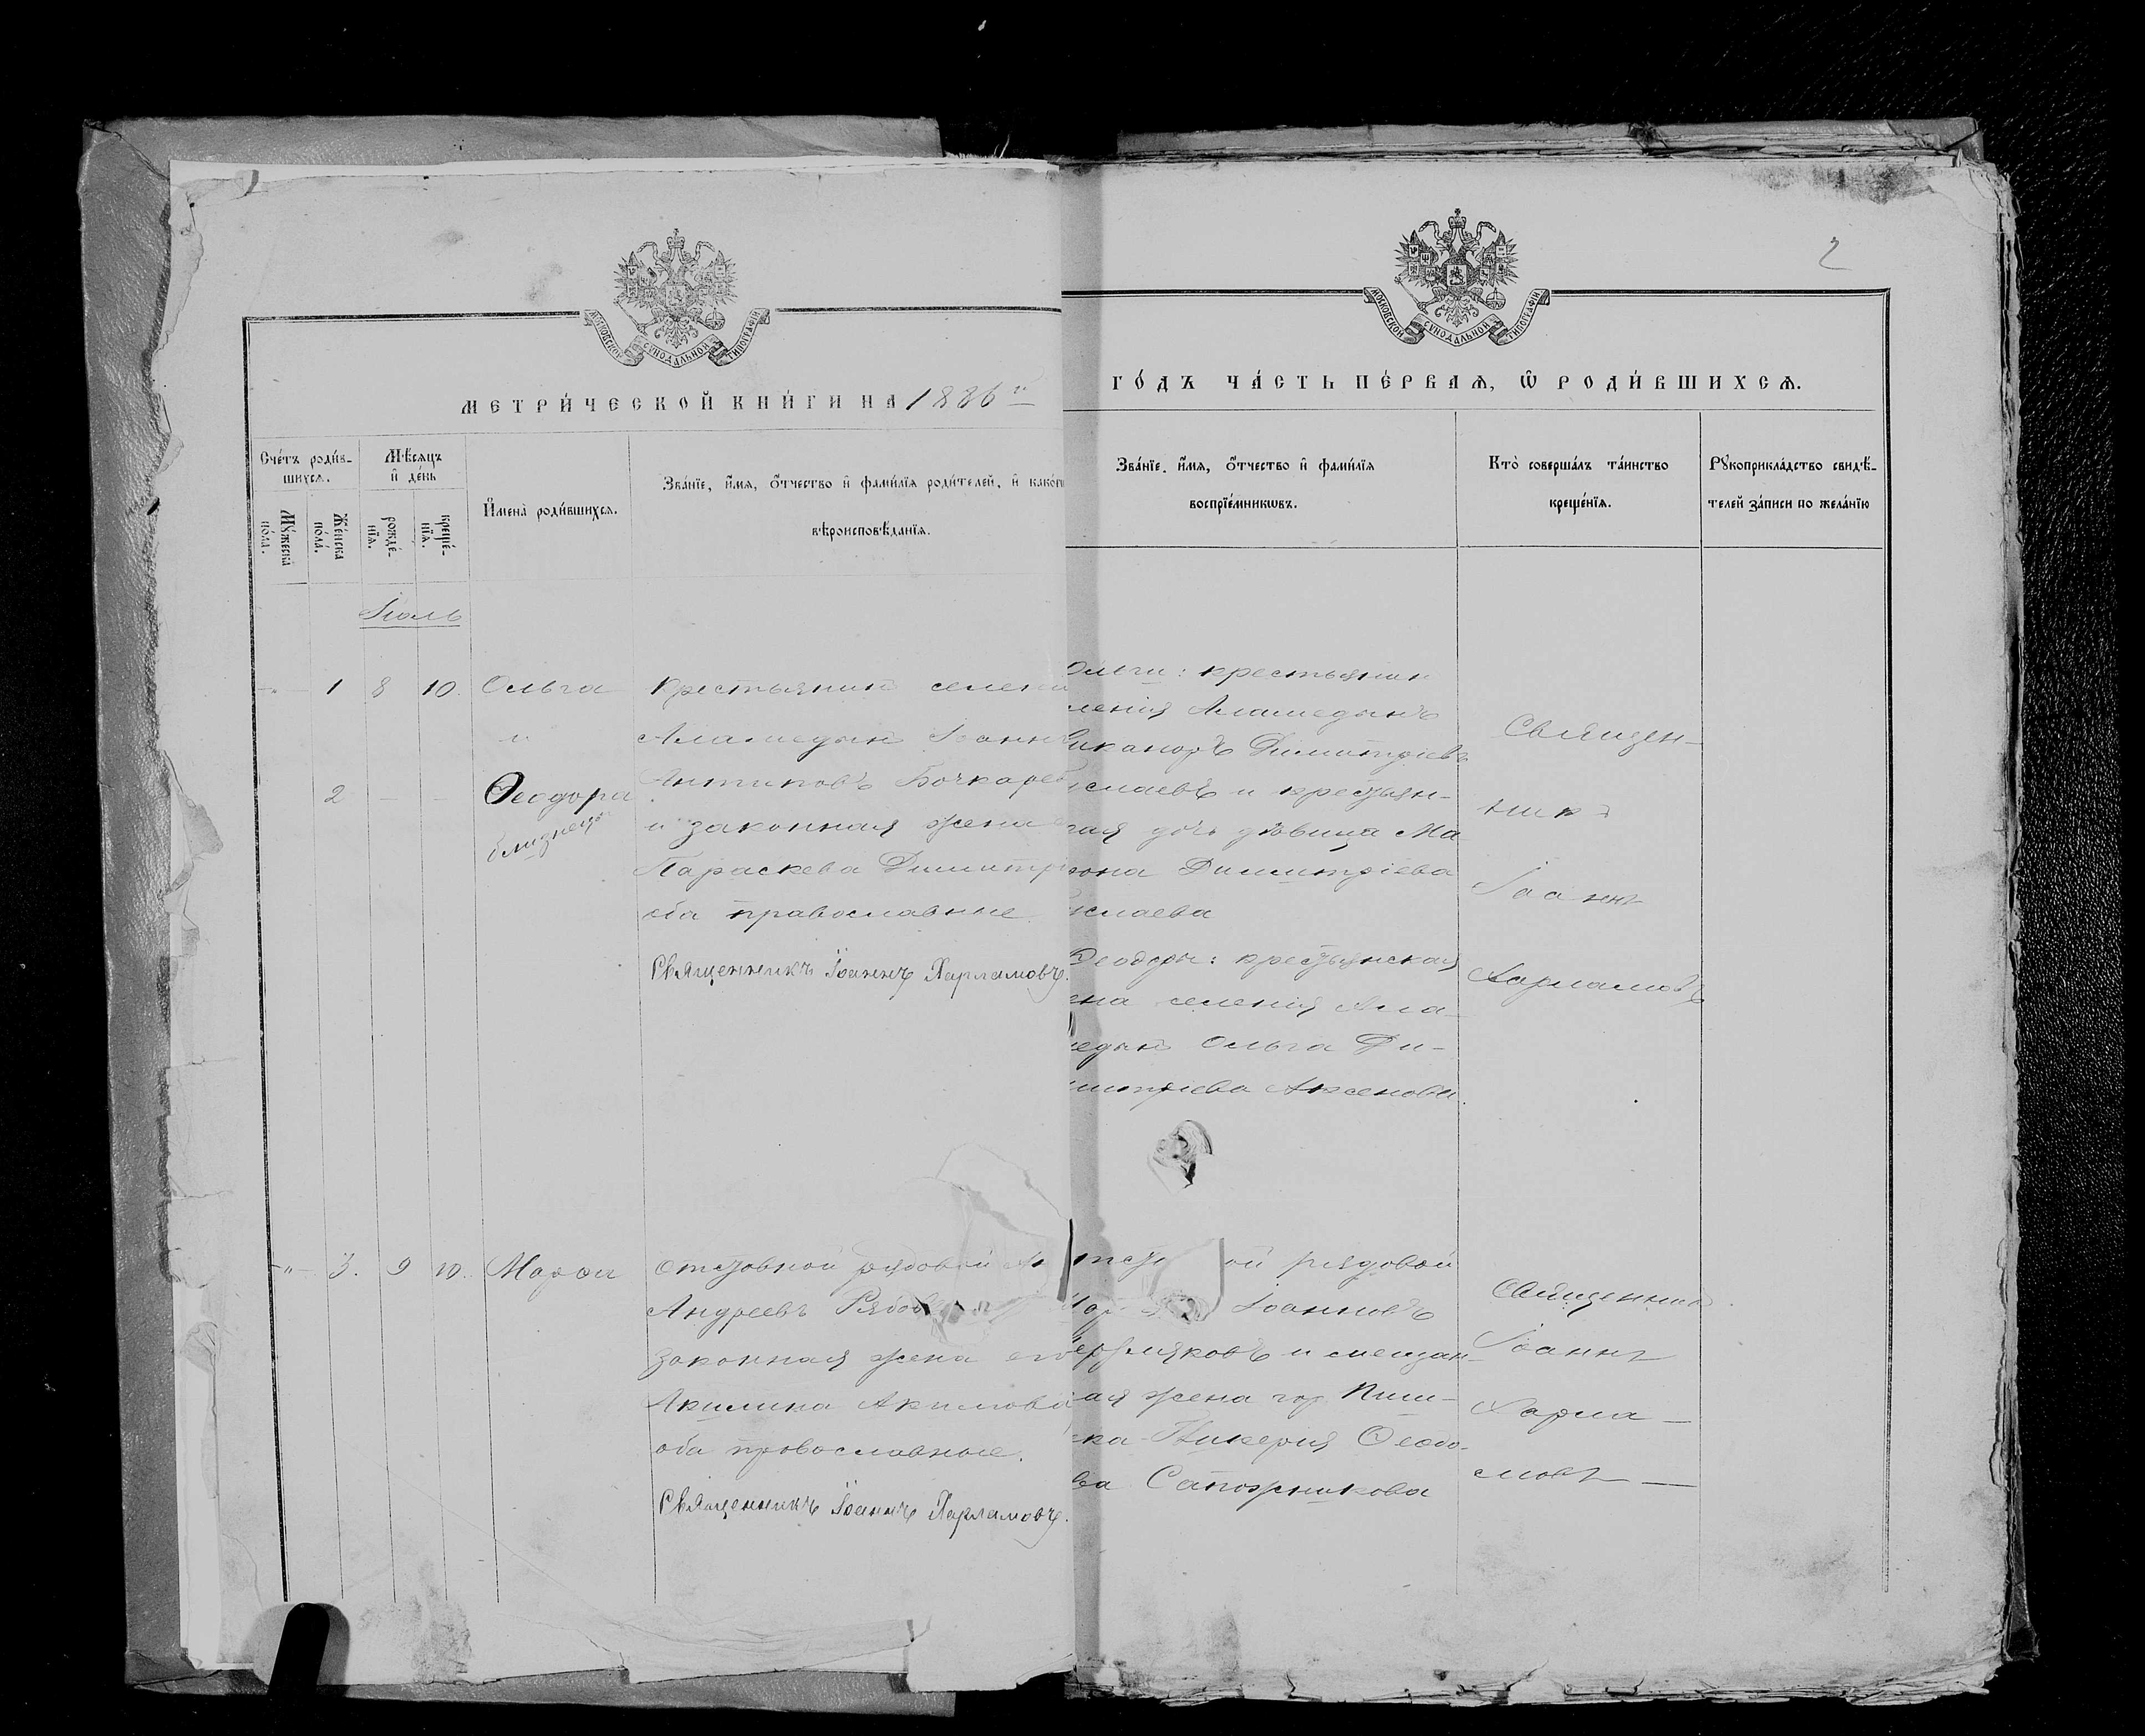 2
МОСКОВСКОЙ СѴНОДАЛЬНОЙ ТИПОГРАФІИ
МОСКОВСКОЙ СѴНОДАЛЬНОЙ ТИПОГРАФІИ
МЕТРИ́ЧЕСКОЙ КНИ́ГИ НА 1886 й
ГО́ДЪ ЧА́СТЬ ПЕ́РВАѦ, Ѡ҆ РОДИ́ВШИХСѦ.
Сче́тъ роди́в-
шихсѧ.
Мꙋ́жеска
по́ла.
Же́нска
по́ла.
Мѣ́сѧцъ
и҆ де́нь
рожде́-
нїѧ.
креще́-
нїѧ.
И҆мена̀ роди́вшихсѧ.
Зва́нїе, и҆́мѧ, ѻ҆́тчество и҆ фами́лїѧ роди́телей, и҆
вѣроисповѣ́данїѧ.
Зва́нїе, и҆́мѧ, ѻ҆́тчество и҆ фами́лїѧ
воспрїе́мникѡвъ.
Кто̀ соверша́лъ та́инство
креще́нїѧ.
Рꙋкоприкла́дство свидѣ́-
телей за́писи по жела́нїю
Іюль
1 8 10. Ольга
и
2 — — Ѳеодора
близнецы
Крестьянинъ селен
Аламедын Іоанн
Антиповъ Бочкарев
и законная жена
Параскева Димитр
оба православные.
Священникъ Іоаннъ Харламовъ.
Ольги: крестьянин
ленія Аламедынъ
Никаноръ Димитріевъ
слаевъ и крестьян-
кая дочь дѣвица Ма-
рона Димитріева
слаева
Ѳеодоры: крестьянская
ена селенія Ала-
медын Ольга Ди-
митріева Аксенова.
Священ-
никъ
Іоаннъ
Харламовъ
—"— 3. 9 10. Марфа
Отставной рядовой
Андреевъ Рябов
законная жена его
Акилина Акимова
оба православные.
Священникъ Іоаннъ Харламовъ.
тст ой рядовой
Іоанновъ
и мещан-
кая жена гор. Пиш-
ека Гликерія Ѳеодо-
ва Сапожникова
Священник
Іоаннъ
Харла—
мовъ —